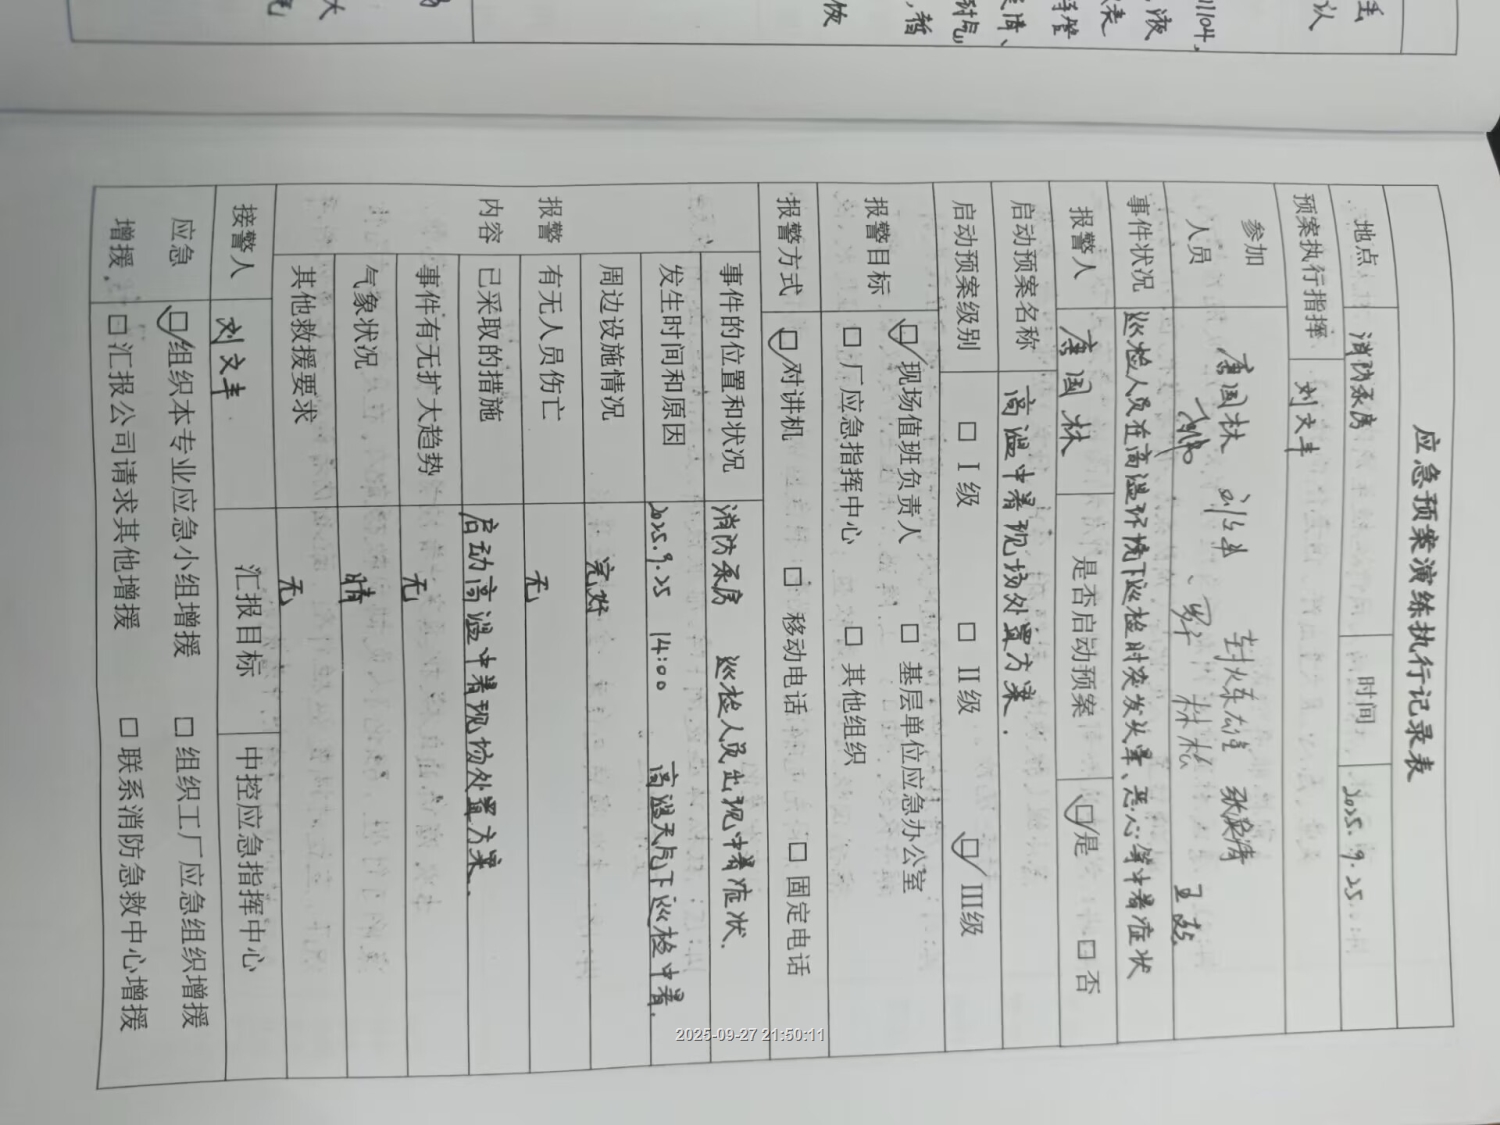 应急预案演练执行记录表
地点 消防泵房 时间 2025.9.25
预案执行指挥 刘文丰
参加人员 唐国林 刘文丰 封火东雄
王喆 林松
事件状况 巡检人员在高温环境下巡检时突发头晕、恶心等中暑症状
报警人 唐国林 是否启动预案 是 □否
启动预案名称 高温中暑现场处置方案.
启动预案级别 □ I级 □ II级 III级
报警目标 现场值班负责人 □ 基层单位应急办公室
□ 厂应急指挥中心 □ 其他组织
报警方式 对讲机 □ 移动电话 □ 固定电话
报警内容
事件的位置和状况 消防泵房 巡检人员出现中暑症状.
发生时间和原因 2025.9.25 14:00 高温天气下巡检中暑.
周边设施情况 完好
有无人员伤亡 无
已采取的措施 启动高温中暑现场处置方案.
事件有无扩大趋势 无
气象状况 晴
其他救援要求 无
接警人 刘文丰 汇报目标 中控应急指挥中心
应急增援 组织本专业应急小组增援 □ 组织工厂应急组织增援
□ 汇报公司请求其他增援 □ 联系消防急救中心增援
2025-09-27 21:50:11